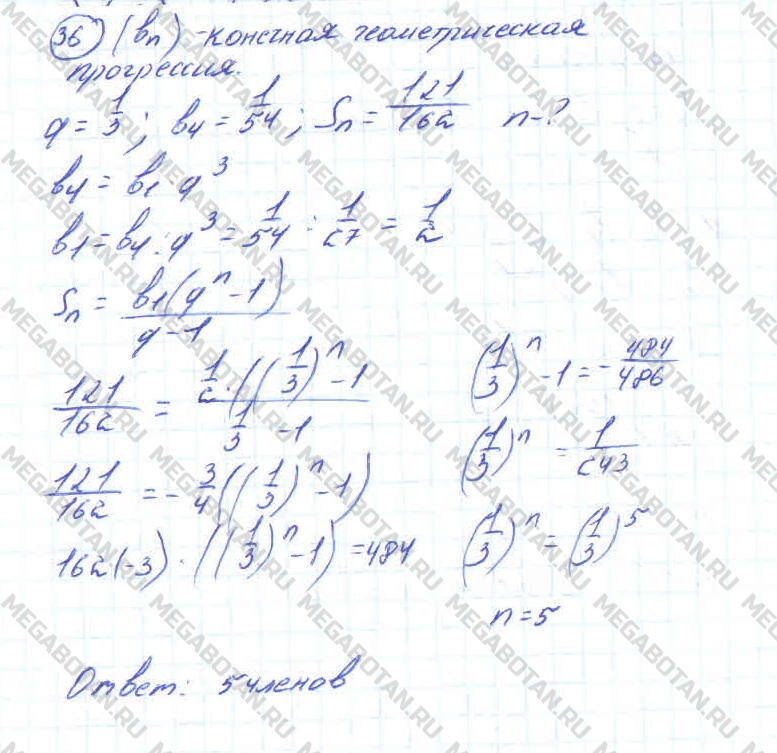 36 (bn) - конечная геометрическая
прогрессия.
q = 1/3; b4 = 1/54; Sn = 121/162 n - ?
b4 = b1 q^3
b1 = b4 : q^3 = 1/54 : 1/27 = 1/2
Sn = b1(q^n - 1) / q - 1
121/162 = 1/2 · ((1/3)^n - 1 / 1/3 - 1
121/162 = - 3/4 ((1/3)^n - 1)
162(-3) · ((1/3)^n - 1) = 484
(1/3)^n - 1 = - 484/486
(1/3)^n = 1/243
(1/3)^n = (1/3)^5
n = 5
Ответ: 5 членов
MEGABOTAN.RU